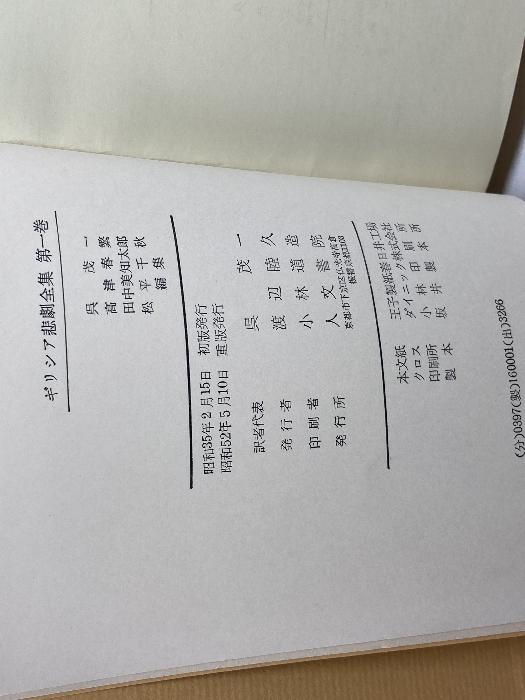 ギリシア悲劇全集 第一巻
呉 茂一
高津春繁
田中美知太郎
松平千秋
編集
昭和35年2月15日 初版発行
昭和52年5月10日 重版発行
訳者代表 呉 茂一
発行者 渡辺睦久
印刷者 小林道造
発行所 人文書院
本文紙 王子製紙春日井工場
クロス ダイニック株式会社
印刷所 小林印刷所
製本 坂井製本所
(分)0397(製)160001(出)3266